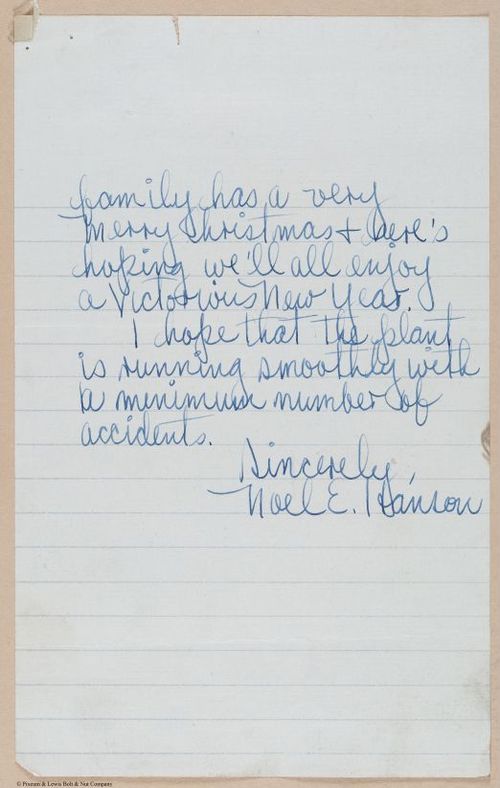 family has a very
Merry Christmas + here's
hoping we'll all enjoy
a Victorious New Year.
I hope that the plant
is running smoothly with
a minimum number of
accidents.
Sincerely,
Noel E. Hanson
© Pixmm & Lewis Bolt & Nut Company